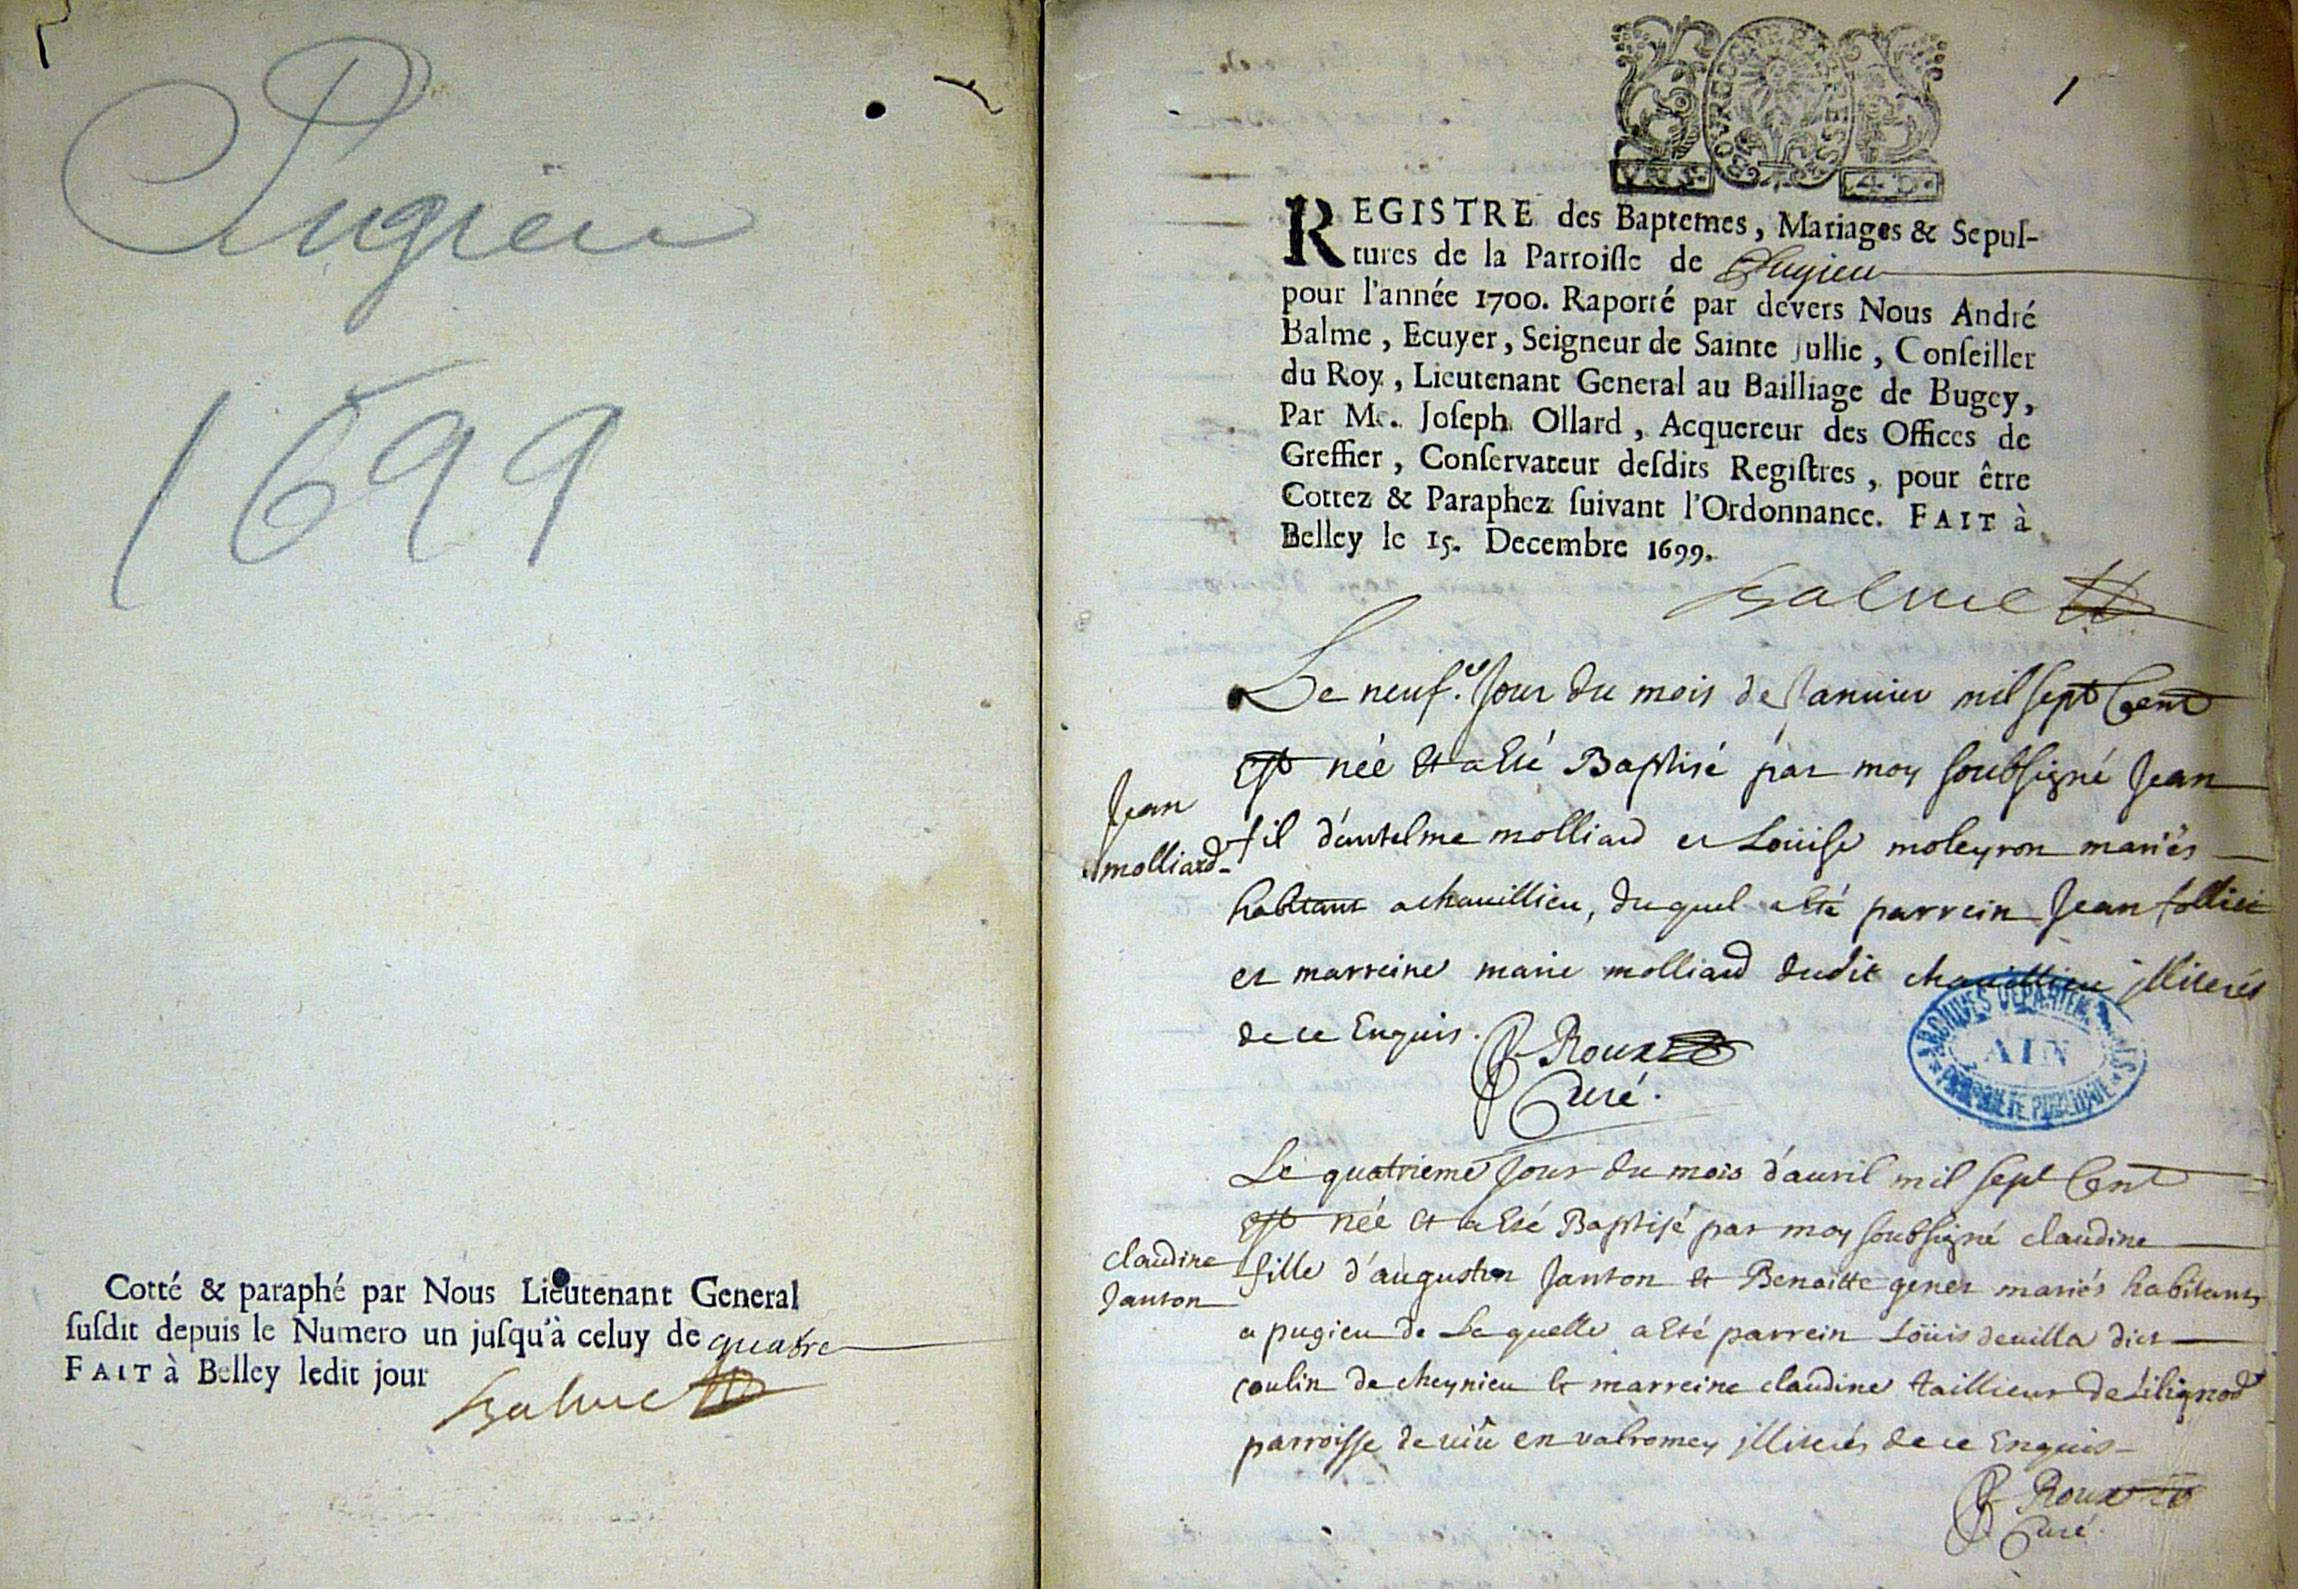 Pugieu
1699
Cotté & paraphé par Nous Lieutenant General
susdit depuis le Numero un jusqu'à celuy de quatre
FAIT à Belley ledit jour
Balme
1
BOURGOGNE BRESSE
4 D.
REGISTRE des Baptemes, Mariages & Sepul-
tures de la Parroisse de Pugieu
pour l'année 1700. Raporté par devers Nous André
Balme, Ecuyer, Seigneur de Sainte Jullie, Conseiller
du Roy, Lieutenant General au Bailliage de Bugey,
Par Me. Joseph Ollard, Acquereur des Offices de
Greffier, Conservateur desdits Registres, pour être
Cottez & Paraphez suivant l'Ordonnance. FAIT à
Belley le 15. Decembre 1699.
Balme
Le neuf.e Jour du mois de Januier mil sept Cent
Est née et a Esté Baptisé par moy soubsigné Jean
Jean
molliard
fil d'antelme molliard et Loüise moleyron mariés
habitant a chauillieu, duquel a Esté parrein Jean follier
et marreine marie molliard dudit chauillieu illiterés
de ce Enquis.
Roux
Curé.
ARCHIVES DEPARTEMENTALES
AIN
PROPRIETE PUBLIQUE
Le quatrieme Jour du mois d'auril mil sept Cent
Est née et a Esté Baptisé par moy soubsigné claudine
claudine
Janton
fille d'augustin Janton et Benoitte genet mariés habitants
a pugieu de Laquelle a Esté parrein Loüis deuilla dict
coulin de cheynieu et marreine claudine taillieur de Lilignod
parroisse de uiü en valromey illiterés de ce Enquis
Roux
Curé.